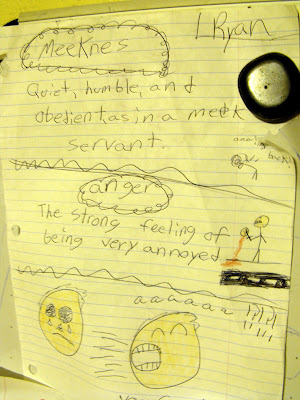 L Ryan
Meeknes
Quiet, humble, and
obedient as in a meek
servant.
anger
The strong feeling of
being very annoyed
aaaaaaa